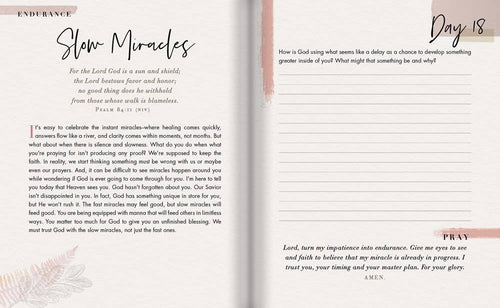 ENDURANCE
Slow Miracles
For the Lord God is a sun and shield;
the Lord bestows favor and honor;
no good thing does he withhold
from those whose walk is blameless.
PSALM 84:11 (NIV)
It's easy to celebrate the instant miracles-where healing comes quickly,
answers flow like a river, and clarity comes within moments, not months. But
what about when there is silence and slowness. What do you do when what
you're praying for isn't producing any proof? We're supposed to keep the
faith. In reality, we start thinking something must be wrong with us or maybe
even our prayers. And, it can be difficult to see miracles happen around you
while wondering if God is ever going to come through for you. I'm here to tell
you today that Heaven sees you. God hasn't forgotten about you. Our Savior
isn't disappointed in you. In fact, God has something unique in store for you,
but He won't rush it. The fast miracles may feel good, but slow miracles will
feed good. You are being equipped with manna that will feed others in limitless
ways. You matter too much for God to give you an unfinished blessing. We
must trust God with the slow miracles, not just the fast ones.
Day 18
How is God using what seems like a delay as a chance to develop something
greater inside of you? What might that something be and why?
PRAY
Lord, turn my impatience into endurance. Give me eyes to see
and faith to believe that my miracle is already in progress. I
trust you, your timing and your master plan. For your glory.
AMEN.